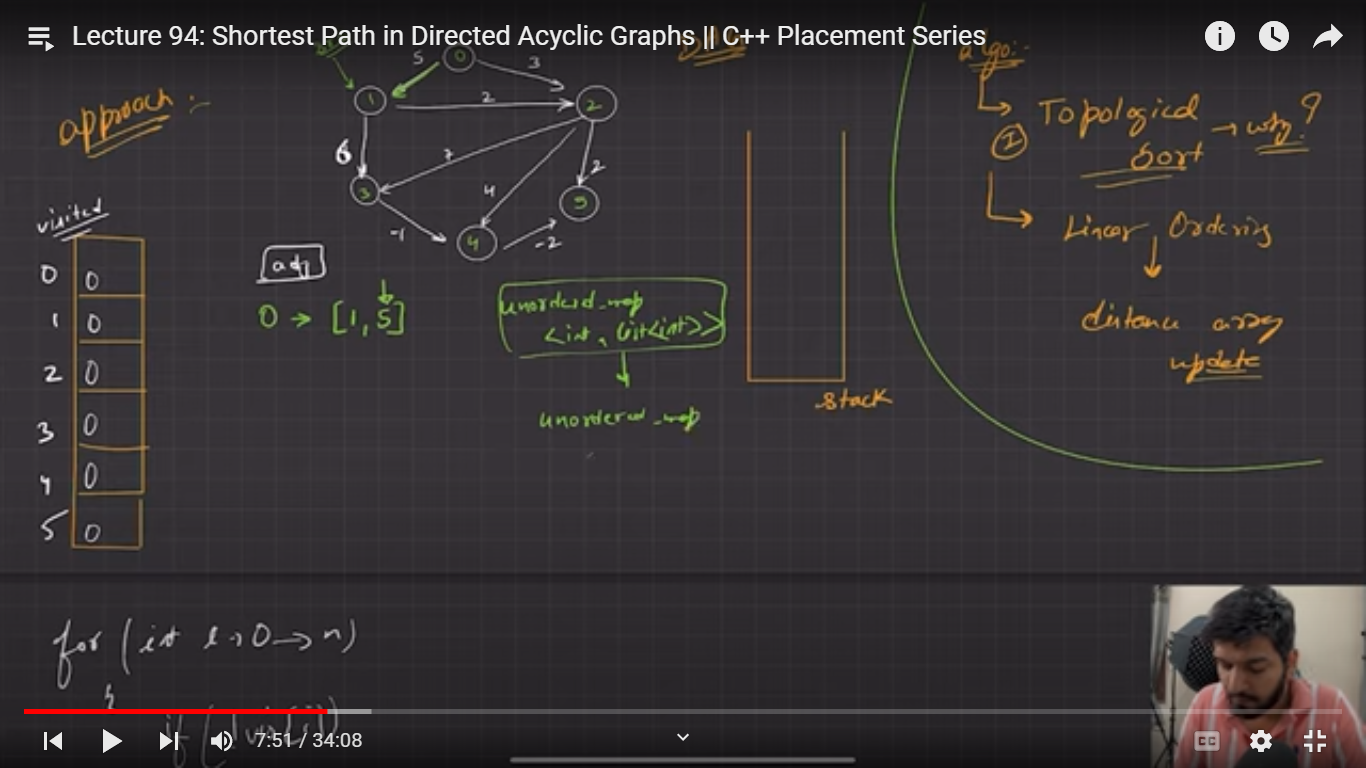 Lecture 94: Shortest Path in Directed Acyclic Graphs || C++ Placement Series
approach :-
5
0
3
1
2
2
6
7
4
2
3
5
-1
4
-2
visited
0 0
1 0
2 0
3 0
4 0
5 0
adj
0 → [1, 5]
unordered_map
<int, list<int>>
unordered_map
stack
algo:-
I Topological → why?
Sort
Linear Ordering
distance array
update
for (int i → 0 → n)
{
if (!vis[i])
7:51 / 34:08
CC